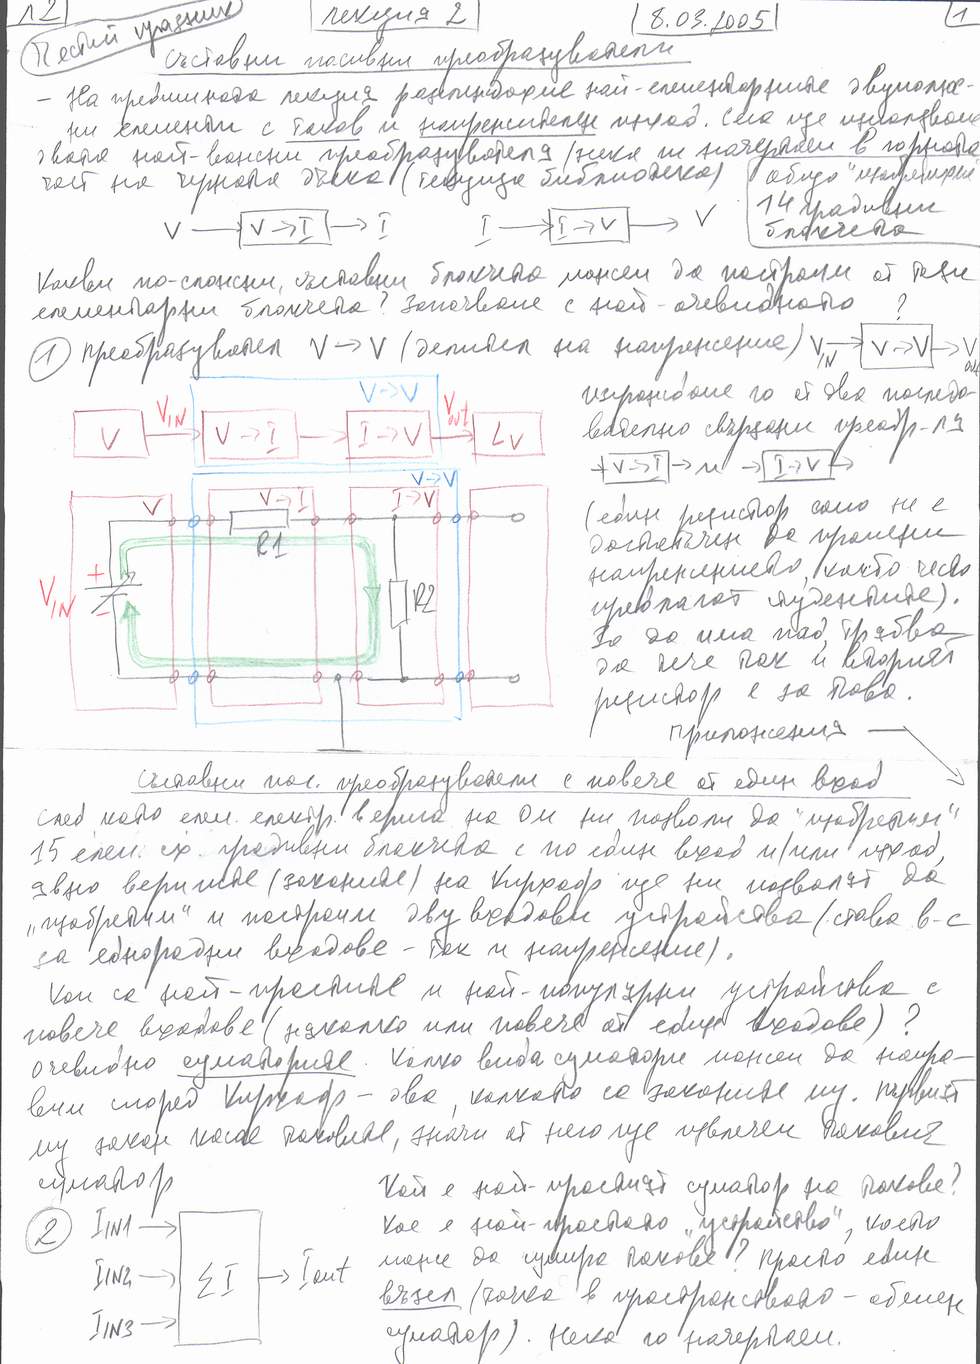 Л2
лекция 2
8.03.2005
1
Честит празник
Съставни пасивни преобразуватели
– На предишната лекция разгледахме най-елементарните двуполюс-
ни елементи с токов и напреженителен изход. Сега ще използваме
двата най-важни преобразувателя / нека ги начертаем в горната
част на черната дъска (текуща библиотека)
общо "
14 градивни
блокчета
V → V→I → I
I → I→V → V
Какви по-сложни, съставни блокчета можем да построим от тези
елементарни блокчета? Започваме с най-очевидното
?
1 преобразувател V→V (делител на напрежение)
VIN → V→V → Vout
изграждаме го от два последо-
вателно свързани преобр-ля
V→I → и → I→V →
(един резистор само не е
достатъчен да промени
напрежението, както често
предлагат студентите).
За да има пад, трябва
да тече ток и вторият
резистор е за това.
Приложения
V→V
V
VIN
V→I
I→V
Vout
LV
V→V
V
V→I
I→V
R1
R2
VIN
+
–
Съставни пас. преобразуватели с повече от един вход
След като елем. електр. верига на Ом ни позволи да "изобретим"
15 елем. сх. градивни блокчета с по един вход и/или изход,
явно веригите (законите) на Кирхоф ще ни позволят да
„изобретим" и построим двувходови устройства (става в-с
за еднородни входове – ток и напрежение).
Кои са най-простите и най-популярни устройства с
повече входове (няколко или повече от един входове)?
Очевидно суматорите. Колко вида суматори можем да напра-
вим според Кирхоф – два, колкото са законите му. Първият
му закон касае токовете, значи от него ще извлечем токовия
суматор
2
IIN1
IIN2
IIN3
ΣI
Iout
Кой е най-простият суматор на токове?
Кое е най-простото „устройство", което
може да сумира токове? Просто един
възел (точка в пространството – обемен
суматор). Нека го начертаем.